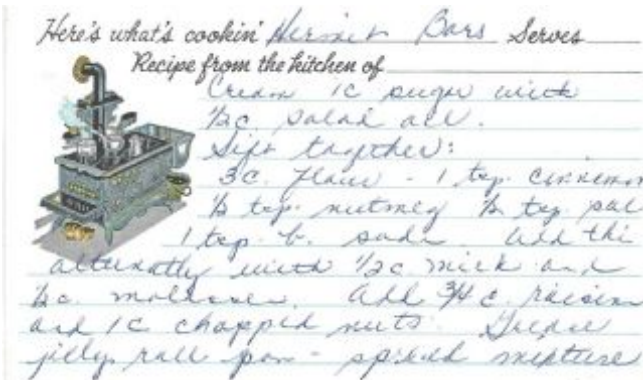 Here's what's cookin' Hermit Bars Serves
Recipe from the kitchen of
Cream 1c sugar with
½c. salad oil.
Sift together:
3c. flour - 1 tsp. cinnamon
½ tsp. nutmeg ½ tsp. sal
1 tsp. b. soda. Add this
alternatly with ½c milk and
½c. molasses. Add ¾ c. raisins
and 1c chopped nuts. Grease
jelly roll pan - spread mixture